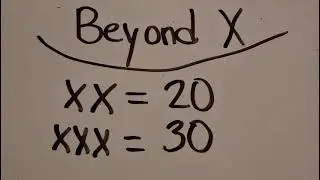 Beyond X
XX = 20
XXX = 30